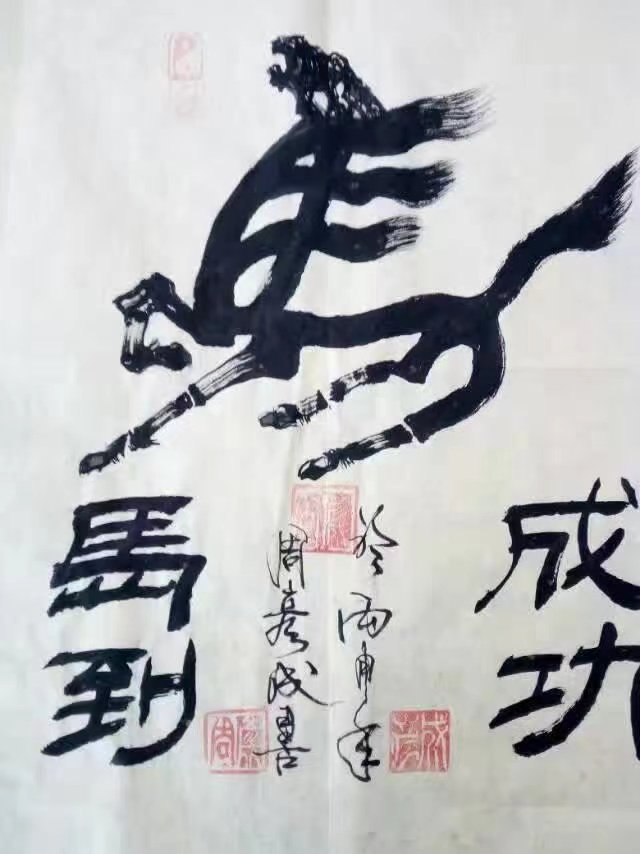 馬
馬到
成功
於丙申年
周彦成書